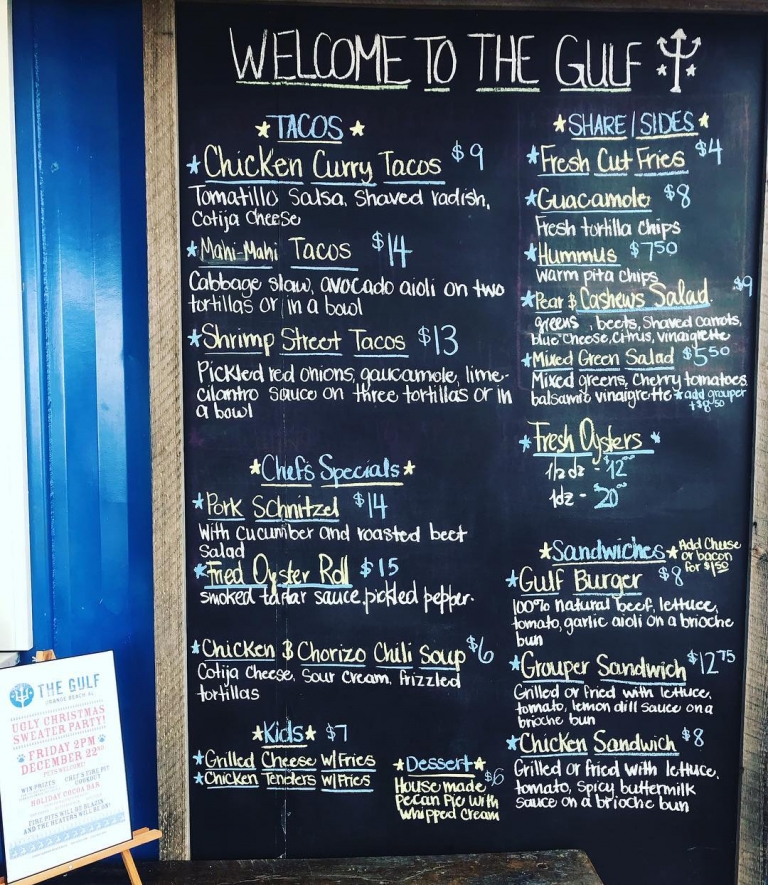 WELCOME TO THE GULF
TACOS
Chicken Curry Tacos $9
Tomatillo Salsa, Shaved radish,
Cotija Cheese
Mahi-Mahi Tacos $14
Cabbage slaw, avocado aioli on two
tortillas or in a bowl
Shrimp Street Tacos $13
Pickled red onions, gaucamole, lime-
cilantro sauce on three tortillas or in
a bowl
Chefs Specials
Pork Schnitzel $14
With cucumber and roasted beet
Salad
Fried Oyster Roll $15
smoked tartar sauce, pickled pepper.
Chicken & Chorizo Chili Soup $6
Cotija Cheese, Sour Cream, frizzled
tortillas
Kids $7
Grilled Cheese w/Fries
Chicken Tenders w/Fries
Dessert
$6
House made
Pecan Pie with
Whipped Cream
SHARE | SIDES
Fresh Cut Fries $4
Guacamole $8
Fresh tortilla chips
Hummus $7.50
warm pita chips
Pear & Cashews Salad $9
greens, beets, Shaved carrots,
blue cheese, citrus, vinaigrette
Mixed Green Salad $5.50
Mixed greens, Cherry tomatoes
balsamic vinaigrette *add grouper
+$8.50
Fresh Oysters
1/2 dz - $12.00
1dz - 20.00
Sandwiches
Add Cheese
or bacon
for $1.50
Gulf Burger $8
100% natural beef, lettuce,
tomato, garlic aioli on a brioche
bun
Grouper Sandwich $12.75
Grilled or fried with lettuce,
tomato, lemon dill sauce on a
brioche bun
Chicken Sandwich $8
Grilled or fried with lettuce,
tomato, spicy buttermilk
sauce on a brioche bun
THE GULF
ORANGE BEACH AL
UGLY CHRISTMAS
SWEATER PARTY!
FRIDAY 2PM
DECEMBER 22ND
PETS WELCOME!
WIN PRIZES
CHEF'S FIRE PIT
COOKOUT
HOLIDAY COCOA BAR
FIRE PITS WILL BE BLAZIN
AND THE HEATERS WILL BE ON!